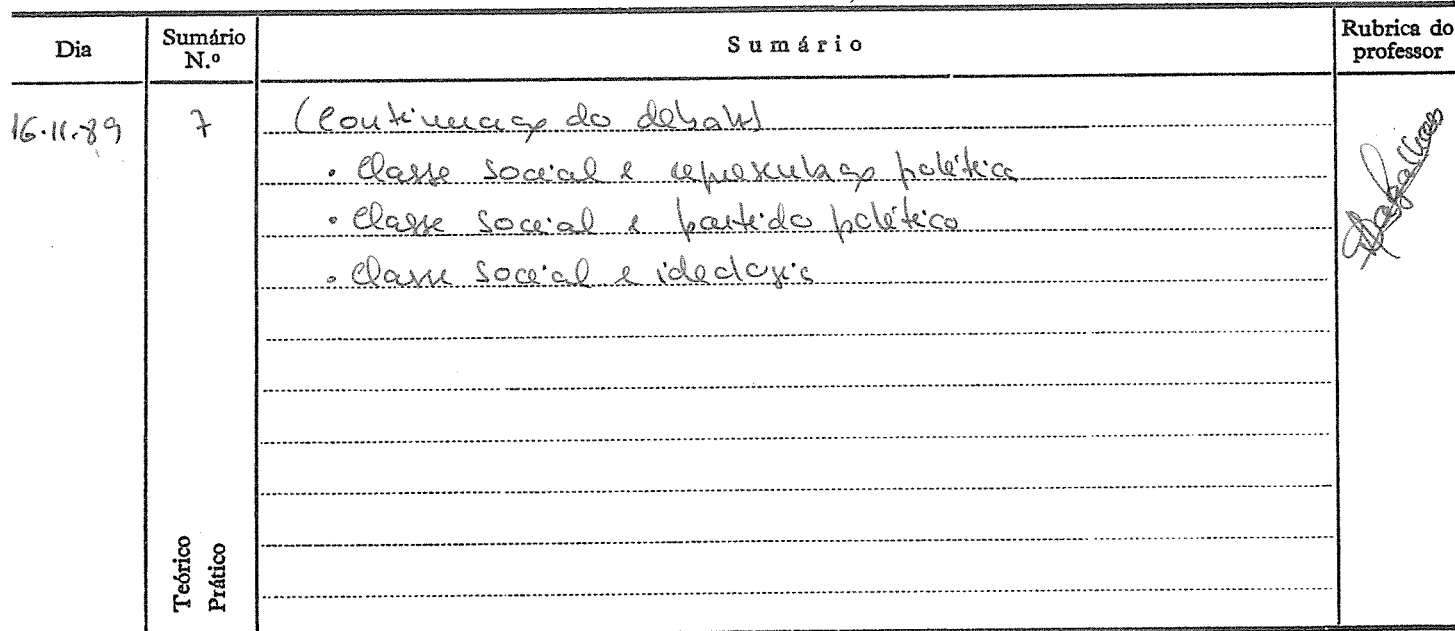 Dia
Sumário N.º
Sumário
Rubrica do professor
16.11.89
7
(Continuação do debate)
• Classe social e representação política
• Classe social e partido político
• Classe social e ideologia
Teórico
Prático